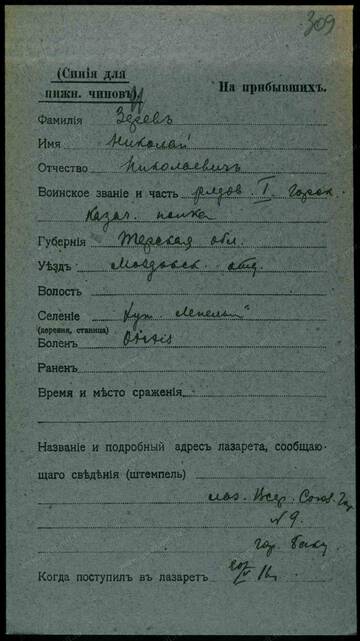 309
(Синія для
нижн. чиновъ). На прибывшихъ.
Фамилія
Имя Николай
Отчество Николаевичъ
Воинское званіе и часть рядов. I Горск.
Казач. полка
Губернія Терская обл.
Уѣздъ Моздовск. отд.
Волость
Селеніе Хут.
(деревня, станица)
Боленъ Otitis
Раненъ
Время и мѣсто сраженія
Названіе и подробный адресъ лазарета, сообщаю-
щаго свѣдѣнія (штемпель)
лаз. Всер. Союз. Гор.
№ 9.
гор. Баку
Когда поступилъ въ лазаретъ